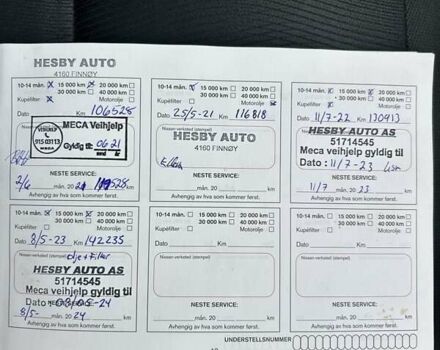 HESBY AUTO
4160 FINNØY
10-14 mån. X 15 000 km X 20 000 km
30 000 km 40 000 km
Kupéfilter X Motorolje
Dato: 106528 Km
MECA Veihjelp
VEIHJELP
915 03113
MECA
Gyldig til: 06 21
mnd år
NESTE SERVICE:
2/6 mån. 20 21 Km
Avhengig av hva som kommer først.
10-14 mån. 15 000 km 20 000 km
30 000 km 40 000 km
Kupéfilter Motorolje
Dato: 25/5-21 116818 Km
Nissan-verksted (stempel)
HESBY AUTO
4160 FINNØY
NESTE SERVICE:
mån. 20 Km
Avhengig av hva som kommer først.
10-14 mån. 15 000 km X 20 000 km
30 000 km 40 000 km
Kupéfilter Motorolje
Dato: 11/7-22 130913
HESBY AUTO AS
51714545
Meca veihjelp gyldig til
Dato: 11/7-23
NESTE SERVICE:
11/7 mån. 20 23 Km
Avhengig av hva som kommer først.
10-14 mån. X 15 000 km X 20 000 km
30 000 km 40 000 km
Kupéfilter Motorolje
Dato: 8/5-23 142235 Km
olje + Filter
HESBY AUTO AS
51714545
Meca veihjelp gyldig til
Dato: 08/05-24
8/5- mån. 20 24 Km
Avhengig av hva som kommer først.
10-14 mån. 15 000 km 20 000 km
30 000 km 40 000 km
Kupéfilter Motorolje
Dato: Km
Nissan-verksted (stempel)
NESTE SERVICE:
mån. 20 Km
Avhengig av hva som kommer først.
10-14 mån. 15 000 km 20 000 km
30 000 km 40 000 km
Kupéfilter Motorolje
Dato: Km
Nissan-verksted (stempel)
NESTE SERVICE:
mån. 20 Km
Avhengig av hva som kommer først.
UNDERSTELLSNUMMER